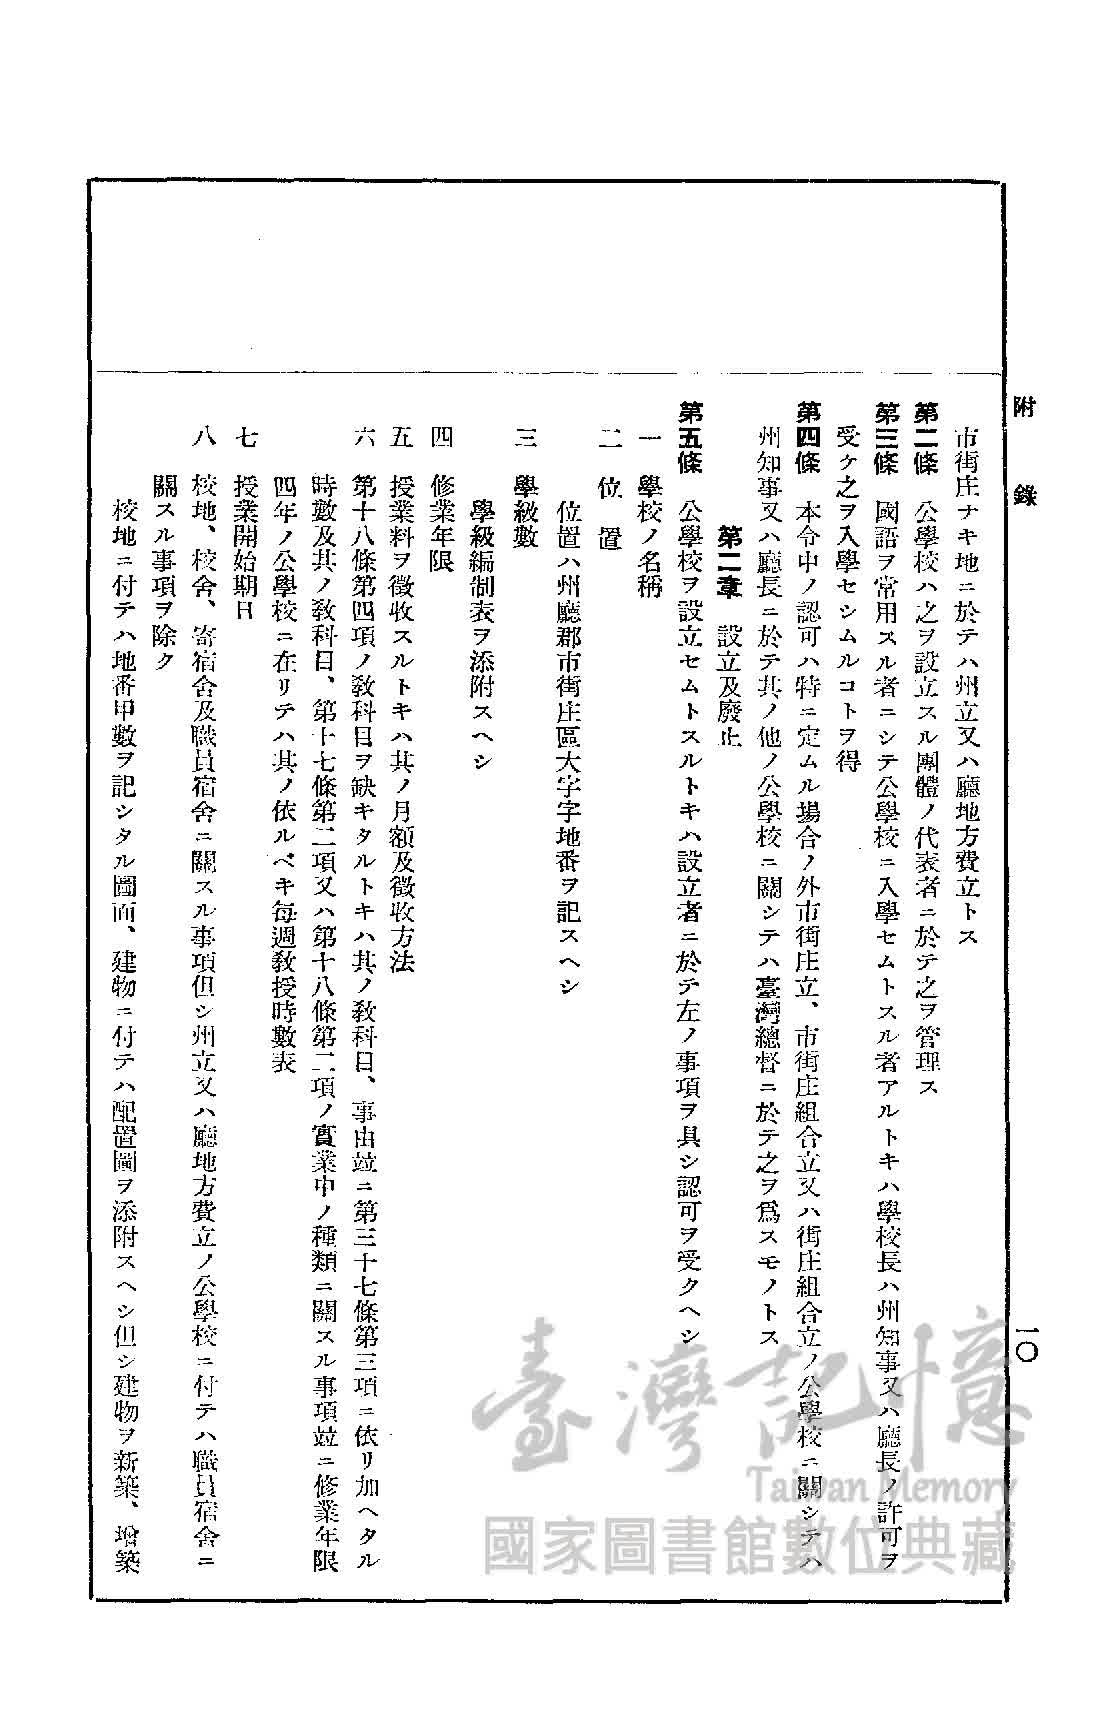 附錄
一〇
市街庄ナキ地ニ於テハ州立又ハ廳地方費立トス
第二條　公學校ハ之ヲ設立スル團體ノ代表者ニ於テ之ヲ管理ス
第三條　國語ヲ常用スル者ニシテ公學校ニ入學セムトスル者アルトキハ學校長ハ州知事又ハ廳長ノ許可ヲ
受ケ之ヲ入學セシムルコトヲ得
第四條　本令中ノ認可ハ特ニ定ムル場合ノ外市街庄立、市街庄組合立又ハ街庄組合立ノ公學校ニ關シテハ
州知事又ハ廳長ニ於テ其ノ他ノ公學校ニ關シテハ臺灣總督ニ於テ之ヲ爲スモノトス
第二章　設立及廢止
第五條　公學校ヲ設立セムトスルトキハ設立者ニ於テ左ノ事項ヲ具シ認可ヲ受クヘシ
一　學校ノ名稱
二　位置
位置ハ州廳郡市街庄區大字字地番ヲ記スヘシ
三　學級數
學級編制表ヲ添附スヘシ
四　修業年限
五　授業料ヲ徵收スルトキハ其ノ月額及徵收方法
六　第十八條第四項ノ教科目ヲ缺キタルトキハ其ノ教科目、事由竝ニ第三十七條第三項ニ依リ加ヘタル
時數及其ノ教科目、第十七條第二項又ハ第十八條第二項ノ實業中ノ種類ニ關スル事項竝ニ修業年限
四年ノ公學校ニ在リテハ其ノ依ルベキ每週教授時數表
七　授業開始期日
八　校地、校舍、寄宿舍及職員宿舍ニ關スル事項但シ州立又ハ廳地方費立ノ公學校ニ付テハ職員宿舍ニ
關スル事項ヲ除ク
校地ニ付テハ地番甲數ヲ記シタル圖面、建物ニ付テハ配置圖ヲ添附スヘシ但シ建物ヲ新築、增築
臺灣記憶
Taiwan Memory
國家圖書館數位典藏